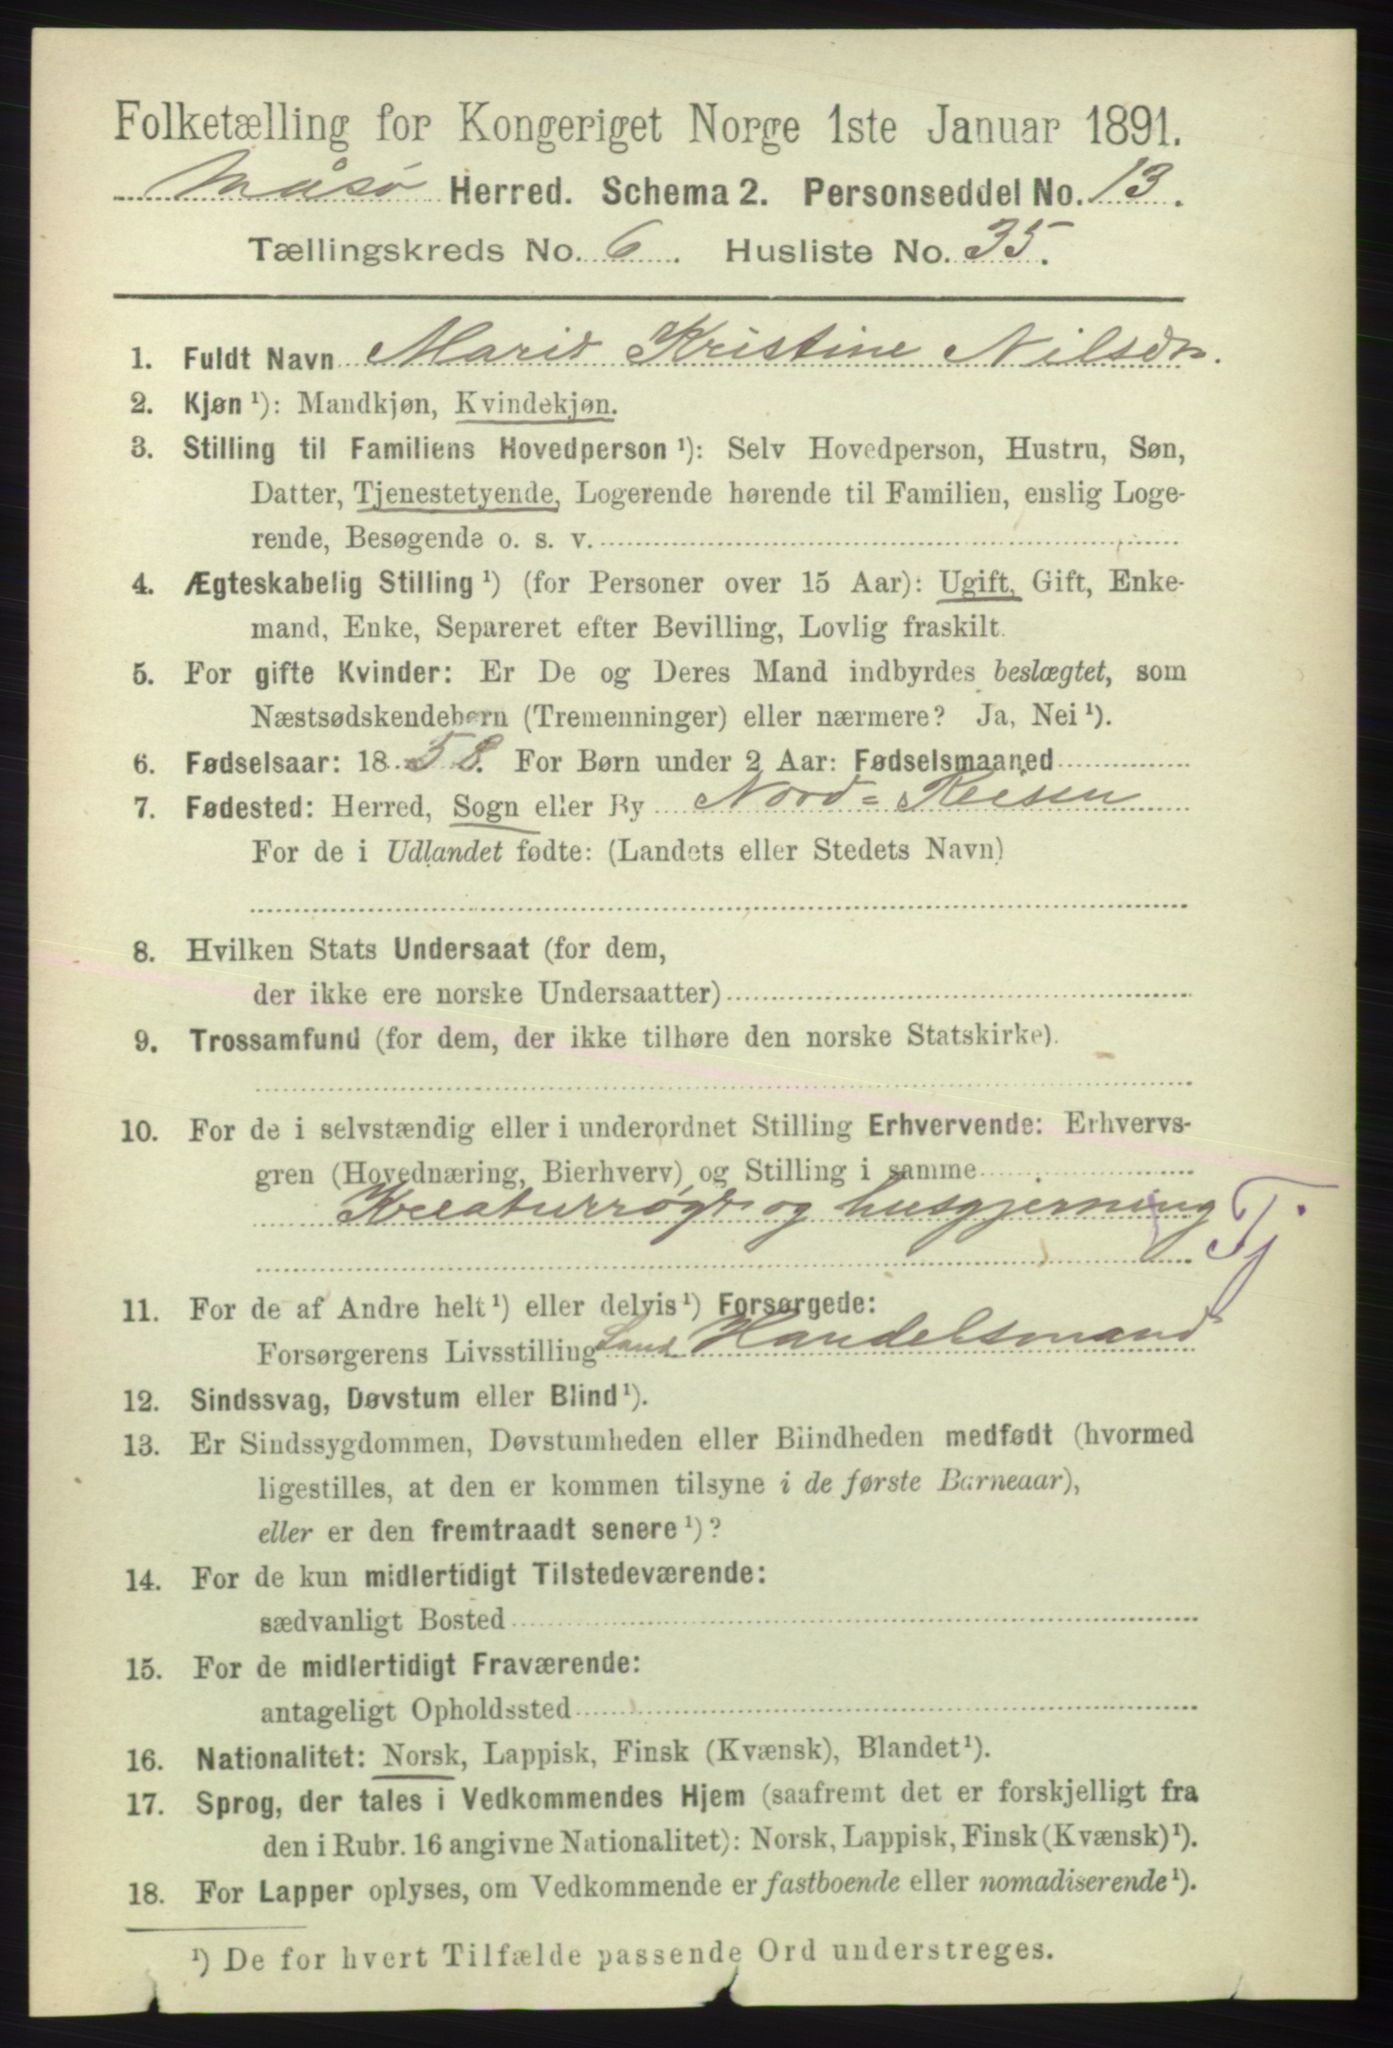 Folketælling for Kongeriget Norge 1ste Januar 1891.
Måsø Herred. Schema 2. Personseddel No. 13.
Tællingskreds No. 6. Husliste No. 35.
1. Fuldt Navn Marie Kristine Nilsdr.
2. Kjøn ¹): Mandkjøn, Kvindekjøn.
3. Stilling til Familiens Hovedperson ¹): Selv Hovedperson, Hustru, Søn,
Datter, Tjenestetyende, Logerende hørende til Familien, enslig Loge-
rende, Besøgende o. s. v.
4. Ægteskabelig Stilling ¹) (for Personer over 15 Aar): Ugift, Gift, Enke-
mand, Enke, Separeret efter Bevilling, Lovlig fraskilt.
5. For gifte Kvinder: Er De og Deres Mand indbyrdes beslægtet, som
Næstsødskendebørn (Tremenninger) eller nærmere? Ja, Nei ¹).
6. Fødselsaar: 1858. For Børn under 2 Aar: Fødselsmaaned
7. Fødested: Herred, Sogn eller By Nord-Reisen
For de i Udlandet fødte: (Landets eller Stedets Navn)
8. Hvilken Stats Undersaat (for dem,
der ikke ere norske Undersaatter)
9. Trossamfund (for dem, der ikke tilhøre den norske Statskirke).
10. For de i selvstændig eller i underordnet Stilling Erhvervende: Erhvervs-
gren (Hovednæring, Bierhverv) og Stilling i samme
Kreaturrøgt og husgjerning Tj
11. For de af Andre helt ¹) eller delvis ¹) Forsørgede:
Forsørgerens Livsstilling Land Handelsmand
12. Sindssvag, Døvstum eller Blind ¹).
13. Er Sindssygdommen, Døvstumheden eller Blindheden medfødt (hvormed
ligestilles, at den er kommen tilsyne i de første Barneaar),
eller er den fremtraadt senere ¹)?
14. For de kun midlertidigt Tilstedeværende:
sædvanligt Bosted
15. For de midlertidigt Fraværende:
antageligt Opholdssted
16. Nationalitet: Norsk, Lappisk, Finsk (Kvænsk), Blandet ¹).
17. Sprog, der tales i Vedkommendes Hjem (saafremt det er forskjelligt fra
den i Rubr. 16 angivne Nationalitet): Norsk, Lappisk, Finsk (Kvænsk) ¹).
18. For Lapper oplyses, om Vedkommende er fastboende eller nomadiserende ¹).
¹) De for hvert Tilfælde passende Ord understreges.